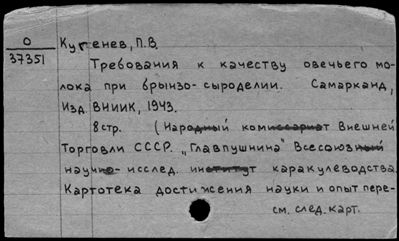 О
37351
Кугенев, П.В.
Требования к качеству овечьего мо-
лока при брынзо-сыроделии. Самарканд,
Изд. ВНИИК, 1943.
8 стр. (Народный комиссариат Внешней
Торговли СССР. „Главпушнина" Всесоюзный
научно-исслед. институт каракулеводства.
Картотека достижения науки и опыт пере-
см. след. карт.